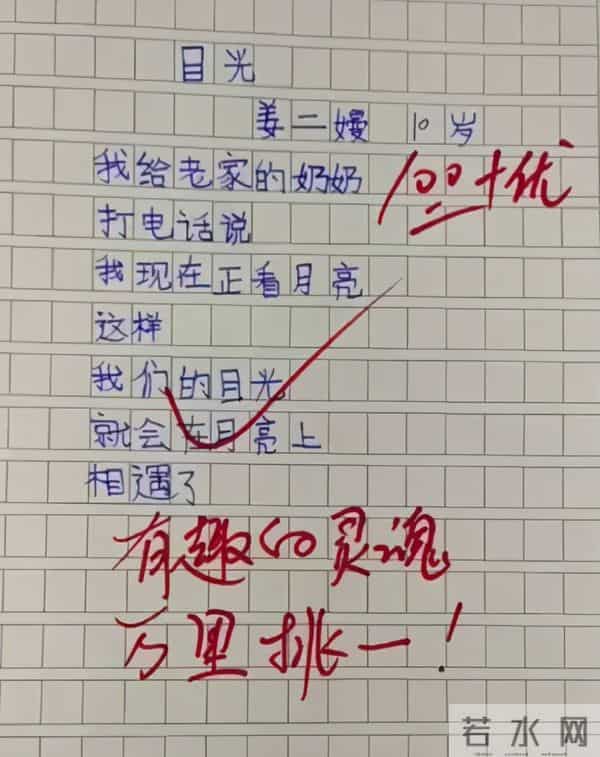 目光
姜二嫚 10岁
我给老家的奶奶
100+优
打电话说
我现在正看月亮
这样
我们的目光
就会在月亮上
相遇了
有趣的灵魂
万里挑一！
若水网